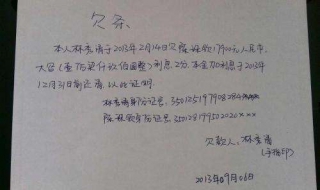 欠条
本人林秀清于2013年2月14日欠陈 1790元人民币
大写(壹万柒仟玖佰圆整)利息2分,本金加利息于2013年
12月31日前还清,以此证明。
林秀清身份证号:350125197908284
陈 身份证号:350128199502020×××
欠款人:林秀清
(手指印)
2013年09月06日